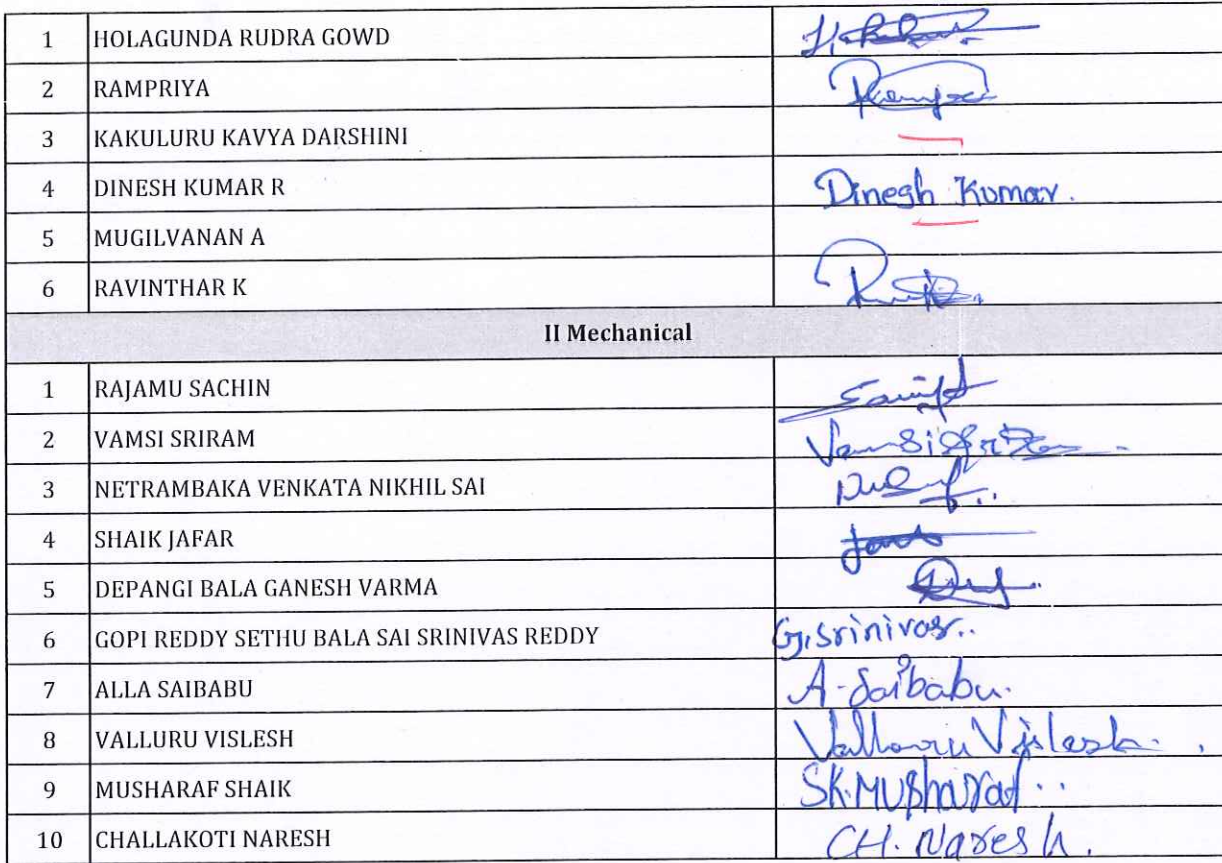 1 HOLAGUNDA RUDRA GOWD
2 RAMPRIYA
3 KAKULURU KAVYA DARSHINI
4 DINESH KUMAR R Dinegh Kumar.
5 MUGILVANAN A
6 RAVINTHAR K
II Mechanical
1 RAJAMU SACHIN
2 VAMSI SRIRAM
3 NETRAMBAKA VENKATA NIKHIL SAI
4 SHAIK JAFAR
5 DEPANGI BALA GANESH VARMA
6 GOPI REDDY SETHU BALA SAI SRINIVAS REDDY G.Srinivas..
7 ALLA SAIBABU A-Saibabu.
8 VALLURU VISLESH Valluru Vislesh.
9 MUSHARAF SHAIK SK.MUSharaf..
10 CHALLAKOTI NARESH CH. Naresh.